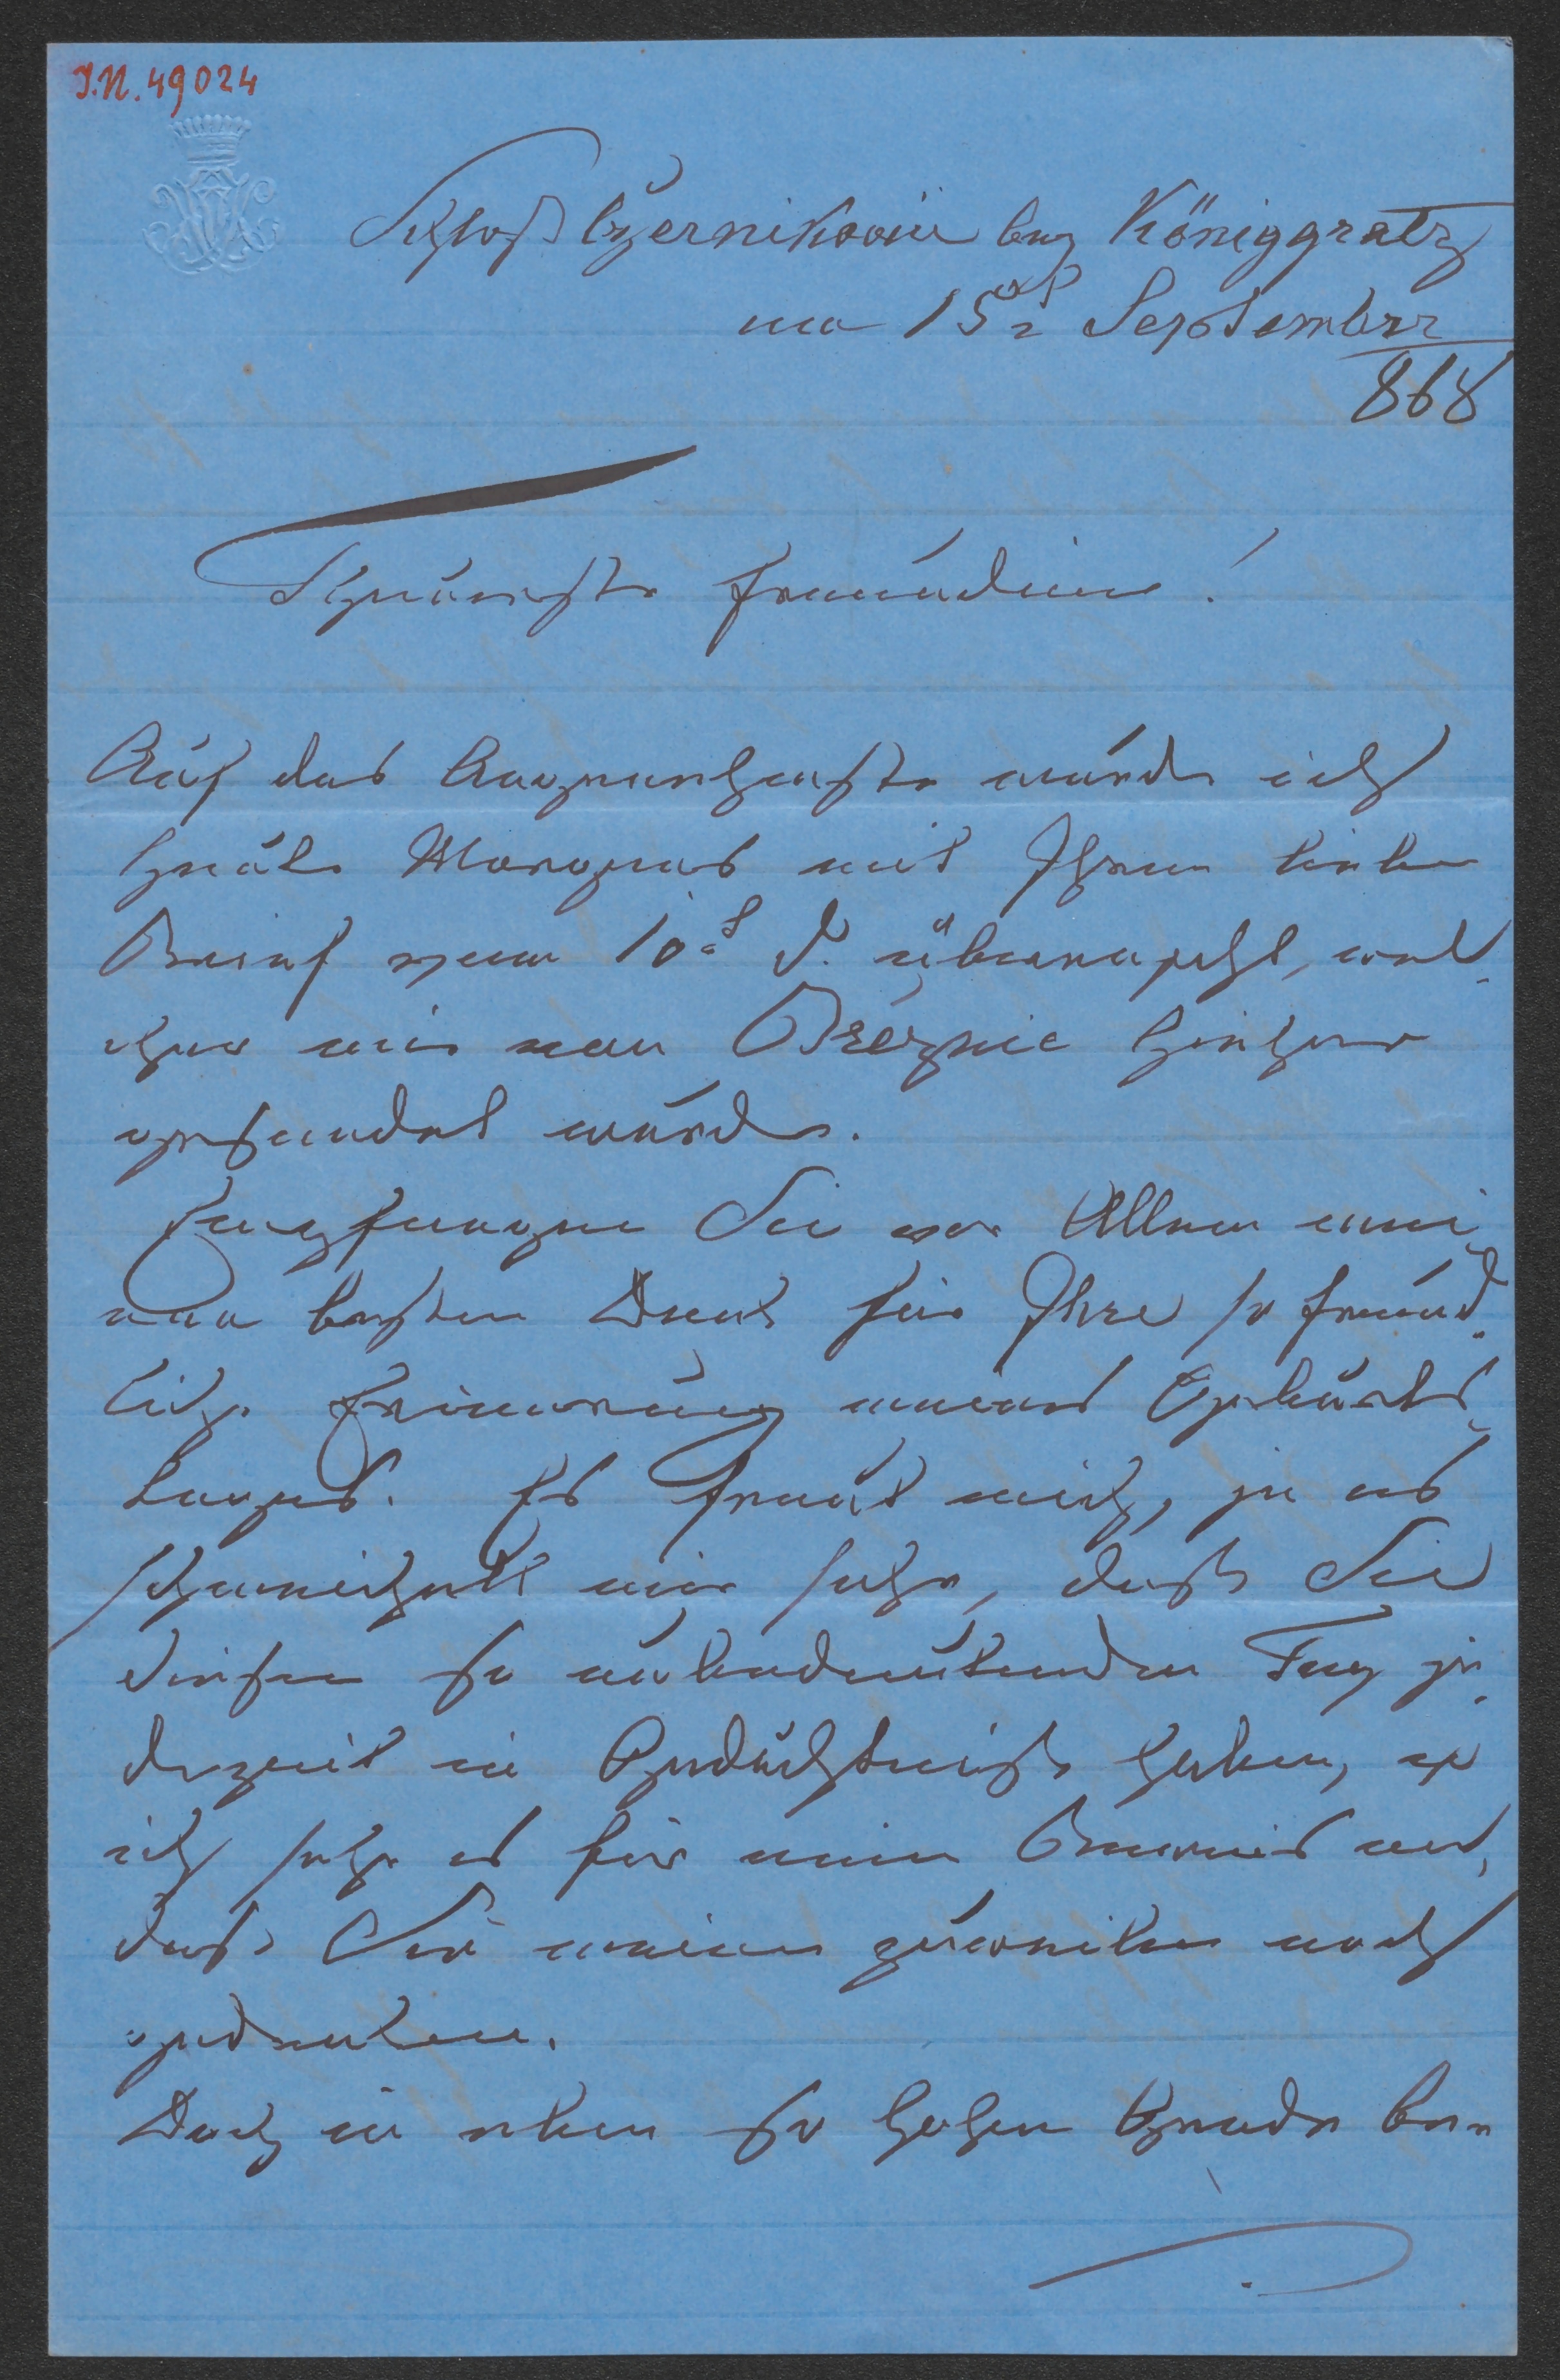 I.N. 49024
Schloß Czernikovic bey Königgratz
am 15t September
868
Schönste Freundin!
Auf das Angenehmste wurde ich
heute Morgens mit Ihrem lieben
Brief vom 10t d. überrascht, wel-
cher mir von Březnic hieher
gesendet wurde.
Empfangen Sie vor Allem mei-
nen besten Dank für Ihre so freund-
liche Erinnerung meines Geburts-
tages. Es freut mich, ja es
schmeichelt mir sehr, daß Sie
diesen so unbedeutenden Tag je-
derzeit in Gedächtniße haben,
ich sehe es für einen Beweis an,
daß Sie meiner zuweilen noch
gedenken.
Doch in eben so hohen Grade be-